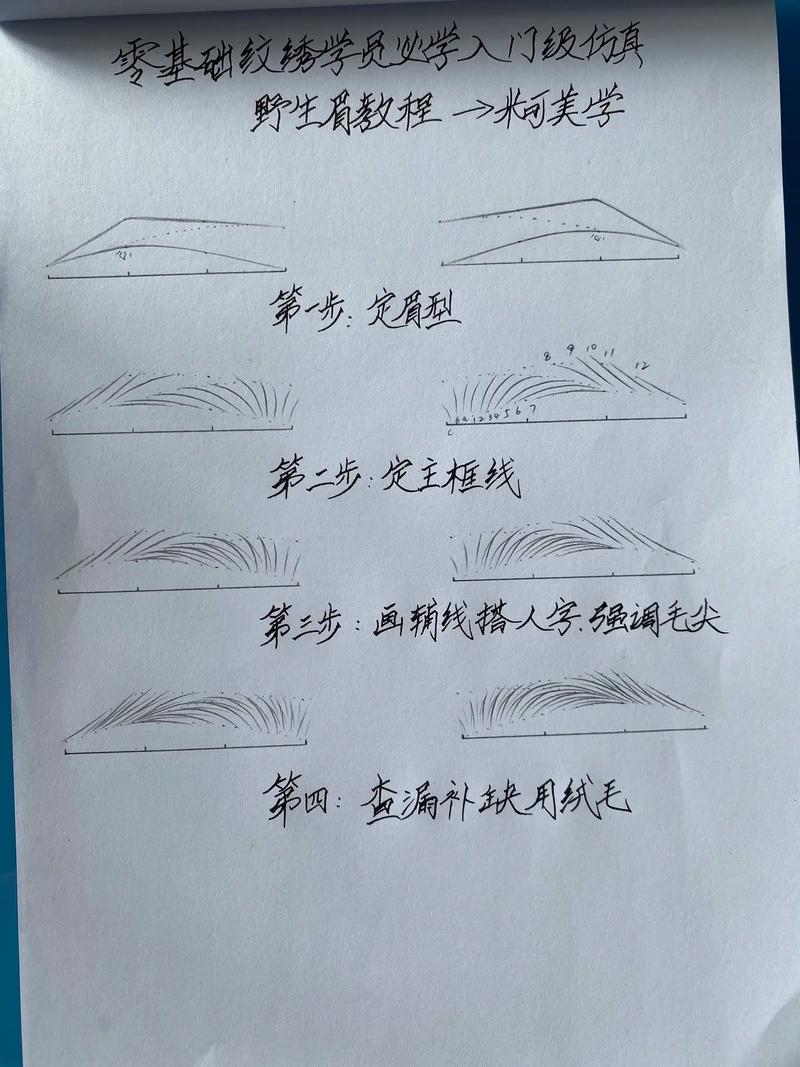 零基础纹绣学员必学入门级仿真
野生眉教程→米可美学
第一步:定眉型
8 9 10 11 12
c b a 1 2 3 4 5 6 7
第二步:定主框线
第三步:画辅线搭人字.强调毛尖
第四:查漏补缺用绒毛